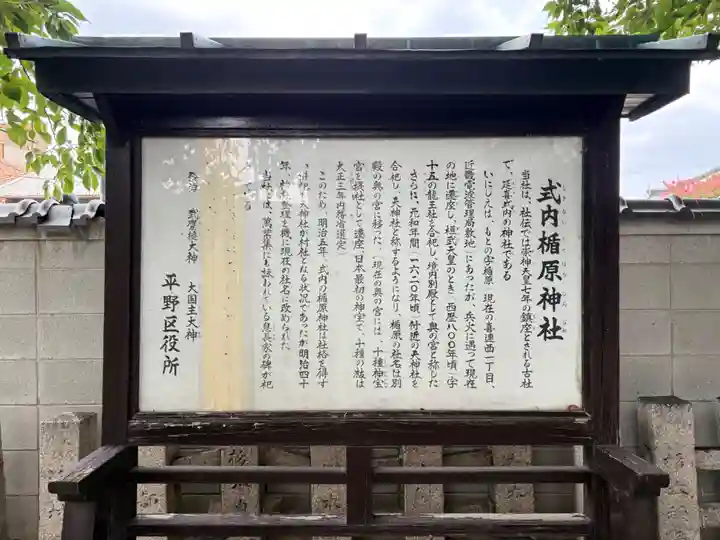 式内楯原神社
当社は、社伝では崇神天皇七年の鎮座とされる古社
で、延喜式内の神社である
いにしえは、もとの字楯原(現在の喜連西一丁目、
近畿電波管理局敷地)にあったが、兵火に遇って現在
の地に遷座し、桓武天皇のとき(西歴八〇〇年頃)字
十五の龍王社を合祀し、境内別殿として奥の宮と称した
さらに、元和年間(一六二〇年頃)付近の天神社を
合祀し、天神社と称するようになり、楯原の社名は別
殿の奥の宮に移った、(現在の奥の宮には、十種神宝
宮を摂社として遷座、日本最初の神宝で、十種の祓は
大正三年内務省選定)
このため、明治五年、式内の楯原神社は社格を得ず
天神社が村社となる状況であったが明治四十
年、整理を機に現在の社名に改められた
当社は、萬葉集にも詠われている息長家の碑が祀
いる
大神 大国主大神
平野区役所